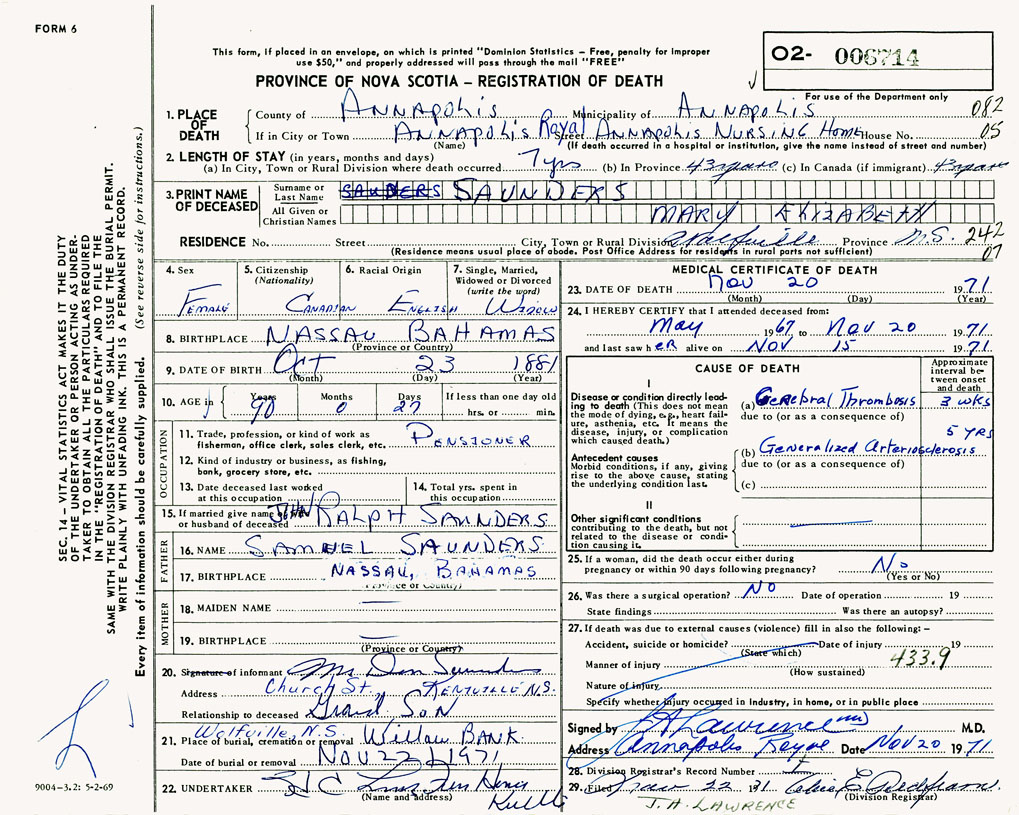 FORM 6
This form, if placed in an envelope, on which is printed "Dominion Statistics – Free, penalty for improper
use $50," and properly addressed will pass through the mail "FREE"
O2- 006714
PROVINCE OF NOVA SCOTIA – REGISTRATION OF DEATH
For use of the Department only
1. PLACE OF DEATH
County of ANNAPOLIS Municipality of ANNAPOLIS 082
If in City or Town ANNAPOLIS Royal Street ANNAPOLIS NURSING HOME House No. 05
(Name) (If death occurred in a hospital or institution, give the name instead of street and number)
2. LENGTH OF STAY (in years, months and days)
(a) In City, Town or Rural Division where death occurred 7 yrs (b) In Province 43 years (c) In Canada (if immigrant) 43 years
3. PRINT NAME OF DECEASED
Surname or Last Name SAUNDERS SAUNDERS
All Given or Christian Names MARY ELIZABETH
RESIDENCE No. Street City, Town or Rural Division Wolfville Province N.S. 242
(Residence means usual place of abode. Post Office Address for residents in rural parts not sufficient) 07
4. Sex
Female
5. Citizenship
(Nationality)
Canadian
6. Racial Origin
English
7. Single, Married,
Widowed or Divorced
(write the word)
Widow
8. BIRTHPLACE NASSAU BAHAMAS
(Province or Country)
9. DATE OF BIRTH Oct 23 1881
(Month) (Day) (Year)
10. AGE in Years 90 Months 0 Days 27 If less than one day
hrs. or min.
OCCUPATION
11. Trade, profession, or kind of work as
fisherman, office clerk, sales clerk, etc. PENSIONER
12. Kind of industry or business, as fishing,
bank, grocery store, etc.
13. Date deceased last worked
at this occupation
14. Total yrs. spent in
this occupation
15. If married give name of wife
or husband of deceased JOHN RALPH SAUNDERS
FATHER
16. NAME SAMUEL SAUNDERS
17. BIRTHPLACE NASSAU, BAHAMAS
(Province or Country)
MOTHER
18. MAIDEN NAME —
19. BIRTHPLACE —
(Province or Country)
20. Signature of informant Mr. Don Saunders
Address Church St., KENTVILLE N.S.
Relationship to deceased Grand Son
Wolfville, N.S.
21. Place of burial, cremation or removal Willow BANK
Date of burial or removal NOV 22 1971
22. UNDERTAKER
(Name and address)
MEDICAL CERTIFICATE OF DEATH
23. DATE OF DEATH Nov 20 1971
(Month) (Day) (Year)
24. I HEREBY CERTIFY that I attended deceased from:
May 1967 to Nov 20 1971
and last saw h ER alive on Nov 15 1971
CAUSE OF DEATH
Approximate
interval be-
tween onset
and death
I
Disease or condition directly lead-
ing to death (This does not mean
the mode of dying, e.g., heart fail-
ure, asthenia, etc. It means the
disease, injury, or complication
which caused death.)
(a) Cerebral Thrombosis 3 wks
due to (or as a consequence of)
5 YRS
Antecedent causes
Morbid conditions, if any, giving
rise to the above cause, stating
the underlying condition last.
(b) Generalized Arteriosclerosis
due to (or as a consequence of)
(c)
II
Other significant conditions
contributing to the death, but not
related to the disease or condi-
tion causing it.
25. If a woman, did the death occur either during
pregnancy or within 90 days following pregnancy? No
(Yes or No)
26. Was there a surgical operation? No Date of operation 19
State findings Was there an autopsy?
27. If death was due to external causes (violence) fill in also the following: –
Accident, suicide or homicide? Date of injury 19
(State which)
433.9
Manner of injury
(How sustained)
Nature of injury
Specify whether injury occurred in industry, in home, or in public place
Signed by J. A. Lawrence M.D.
Address Annapolis Royal Date Nov 20 1971
28. Division Registrar's Record Number
29. Filed 22 1971
(Division Registrar)
J. A. LAWRENCE
SEC. 14 – VITAL STATISTICS ACT MAKES IT THE DUTY
OF THE UNDERTAKER OR PERSON ACTING AS UNDER-
TAKER TO OBTAIN ALL THE PARTICULARS REQUIRED
IN THE "REGISTRATION OF DEATH" AND TO FILE THE
SAME WITH THE DIVISION REGISTRAR WHO SHALL ISSUE THE BURIAL PERMIT.
WRITE PLAINLY WITH UNFADING INK. THIS IS A PERMANENT RECORD.
Every item of information should be carefully supplied. (See reverse side for instructions.)
9004-3.2: 5-2-69